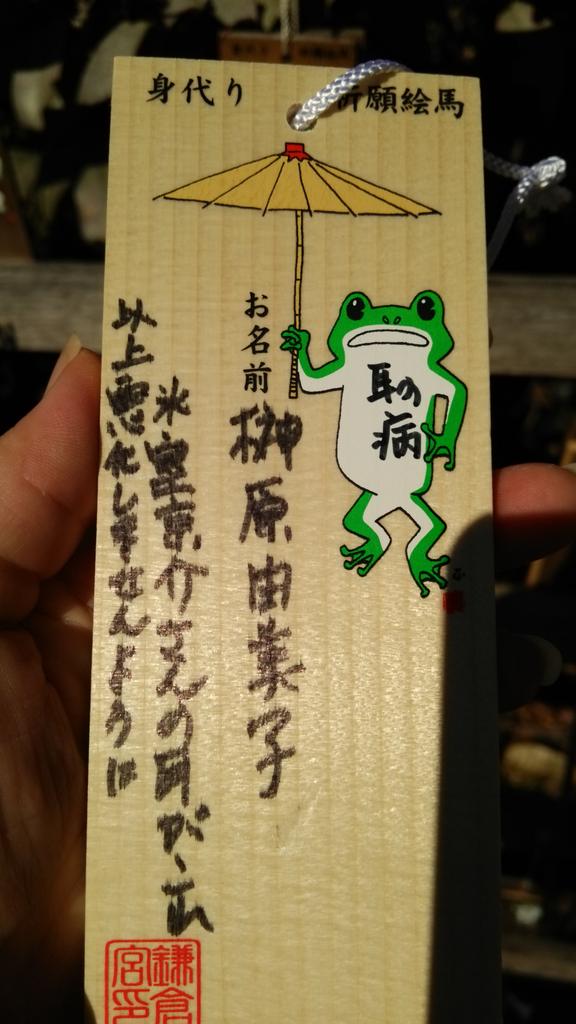 身代り 祈願絵馬
耳の
病
お名前
榊原由美子
氷室京介さんの耳が、これ
以上悪化しませんように
鎌倉
宮印